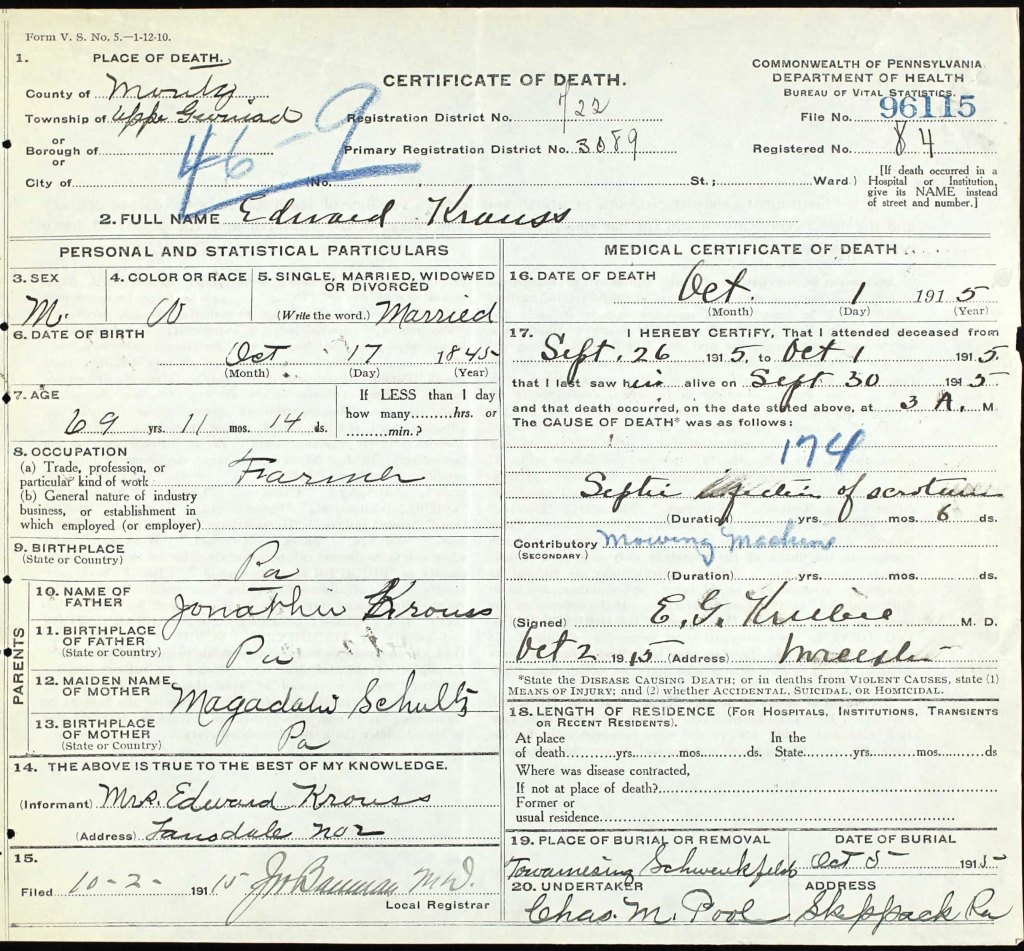 Form V. S. No. 5.—1-12-10.
1. PLACE OF DEATH.
County of Montg
Township of Upper Gwynedd
or
Borough of
or
City of
CERTIFICATE OF DEATH.
46-9
Registration District No. 722
Primary Registration District No. 3089
No. , St.; Ward)
COMMONWEALTH OF PENNSYLVANIA
DEPARTMENT OF HEALTH
BUREAU OF VITAL STATISTICS.
File No. 96115
Registered No. 84
[If death occurred in a
Hospital or Institution,
give its NAME instead
of street and number.]
2. FULL NAME Edward Krauss
PERSONAL AND STATISTICAL PARTICULARS
3. SEX
M.
4. COLOR OR RACE
W
5. SINGLE, MARRIED, WIDOWED
OR DIVORCED
(Write the word.) Married
6. DATE OF BIRTH
Oct 17 1845
(Month) (Day) (Year)
7. AGE
69 yrs. 11 mos. 14 ds.
If LESS than 1 day
how many........hrs. or
.........min.?
8. OCCUPATION
(a) Trade, profession, or
particular kind of work Farmer
(b) General nature of industry
business, or establishment in
which employed (or employer)
9. BIRTHPLACE
(State or Country) Pa
PARENTS
10. NAME OF
FATHER Krauss
11. BIRTHPLACE
OF FATHER
(State or Country) Pa
12. MAIDEN NAME
OF MOTHER Schultz
13. BIRTHPLACE
OF MOTHER
(State or Country) Pa
14. THE ABOVE IS TRUE TO THE BEST OF MY KNOWLEDGE.
(Informant) Mrs. Edward Krauss
(Address) Lansdale No 2
15.
Filed 10-2- 1915
M.D.
Local Registrar
MEDICAL CERTIFICATE OF DEATH
16. DATE OF DEATH
Oct. 1 1915
(Month) (Day) (Year)
17. I HEREBY CERTIFY, That I attended deceased from
Sept. 26 1915, to Oct 1 1915.
that I last saw him alive on Sept 30 1915
and that death occurred, on the date stated above, at 3 A. M.
The CAUSE OF DEATH* was as follows:
174
Septic infection of scrotum
(Duration) yrs. mos. 6 ds.
Contributory Mowing Machine
(SECONDARY.)
(Duration) yrs. mos. ds.
(Signed) E. G. M. D.
Oct 2 1915 (Address) Worcester
*State the DISEASE CAUSING DEATH; or in deaths from VIOLENT CAUSES, state (1)
MEANS OF INJURY; and (2) whether ACCIDENTAL, SUICIDAL, or HOMICIDAL.
18. LENGTH OF RESIDENCE (FOR HOSPITALS, INSTITUTIONS, TRANSIENTS
OR RECENT RESIDENTS).
At place In the
of death.........yrs.........mos.........ds. State.........yrs.........mos.........ds
Where was disease contracted,
If not at place of death?
Former or
usual residence
19. PLACE OF BURIAL OR REMOVAL
Towamensing Schwenkfelds
DATE OF BURIAL
Oct 5- 1915-
20. UNDERTAKER
Chas. M. Pool
ADDRESS
Skippack Pa